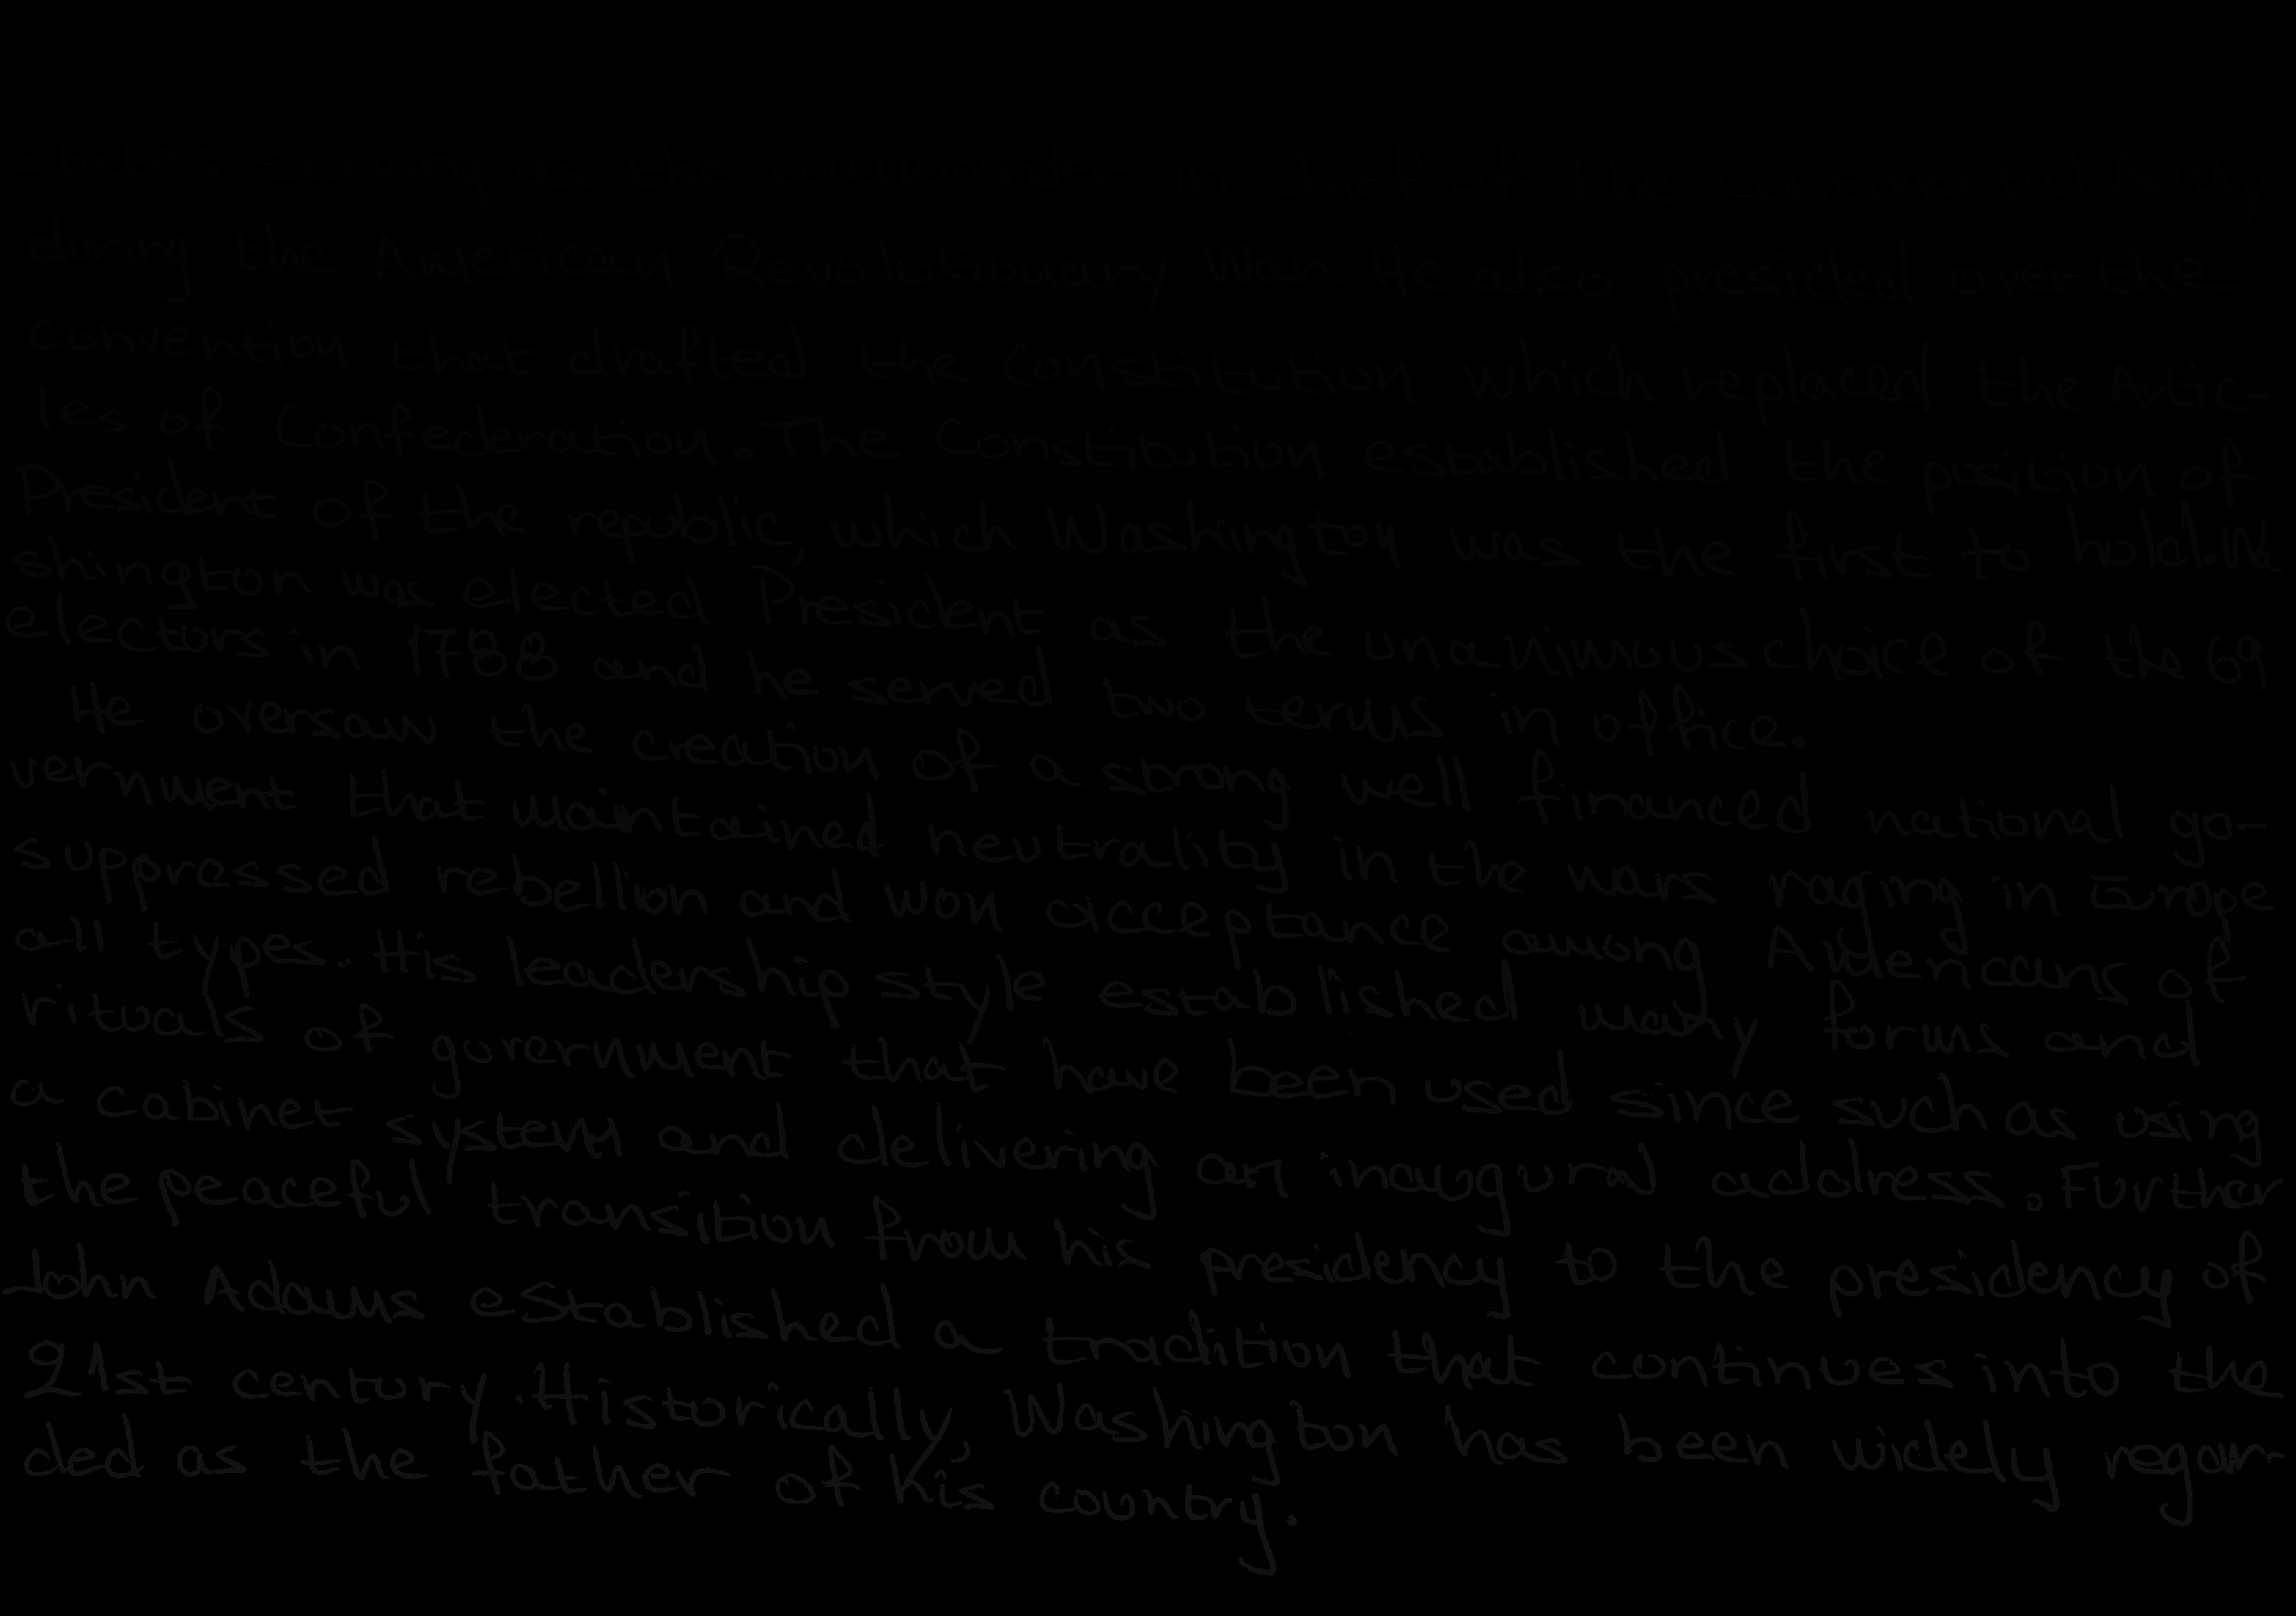 George Washington was one of the Founding Fathers of the United
states serving as the commander in chief of the Continental Army
during the American Revolutionary War. He also presided over the
convention that drafted the Constitution which replaced the Artic-
les of Confederation. The Constitution established the position of
President of the republic, which Washington was the first to hold. Wa
shington was elected President as the unanimous choice of the 69
electors in 1788 and he served two terms in office.
He oversaw the creation of a strong well financed national go-
vernment that maintained neutrality in the wars raging in Europe
suppressed rebellion and won acceptance among Americans of
all types. His leadership style established many forms and
rituals of government that have been used since such as using
a cabinet system and delivering an inaugural address. Further
the peaceful transition from his presidency to the presidency of
John Adams established a tradition that continues into the
21st century. Historically, Washington has been widely regar-
ded as the father of his country.